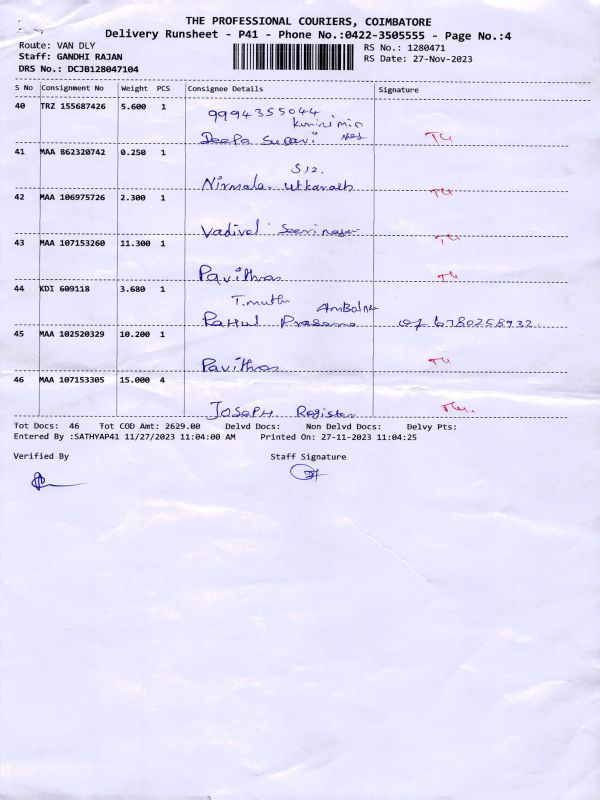 THE PROFESSIONAL COURIERS, COIMBATORE
Delivery Runsheet - P41 - Phone No.:0422-3505555 - Page No.:4
Route: VAN DLY
RS No.: 1280471
Staff: GANDHI RAJAN
RS Date: 27-Nov-2023
DRS No.: DCJB128047104
S No Consignment No Weight PCS Consignee Details Signature
40 TRZ 155687426 5.600 1
9994355044
Deepa
41 MAA 862320742 0.250 1
Nirmala
42 MAA 106975726 2.300 1
Vadivel
43 MAA 107153260 11.300 1
Pavithra
44 KDI 609118 3.680 1
T.muthu
Rahul
45 MAA 102520329 10.200 1
Pavithra
46 MAA 107153305 15.000 4
JOSEPH. Register
Tot Docs: 46 Tot COD Amt: 2629.00 Delvd Docs: Non Delvd Docs: Delvy Pts:
Entered By :SATHYAP41 11/27/2023 11:04:00 AM Printed On: 27-11-2023 11:04:25
Verified By Staff Signature